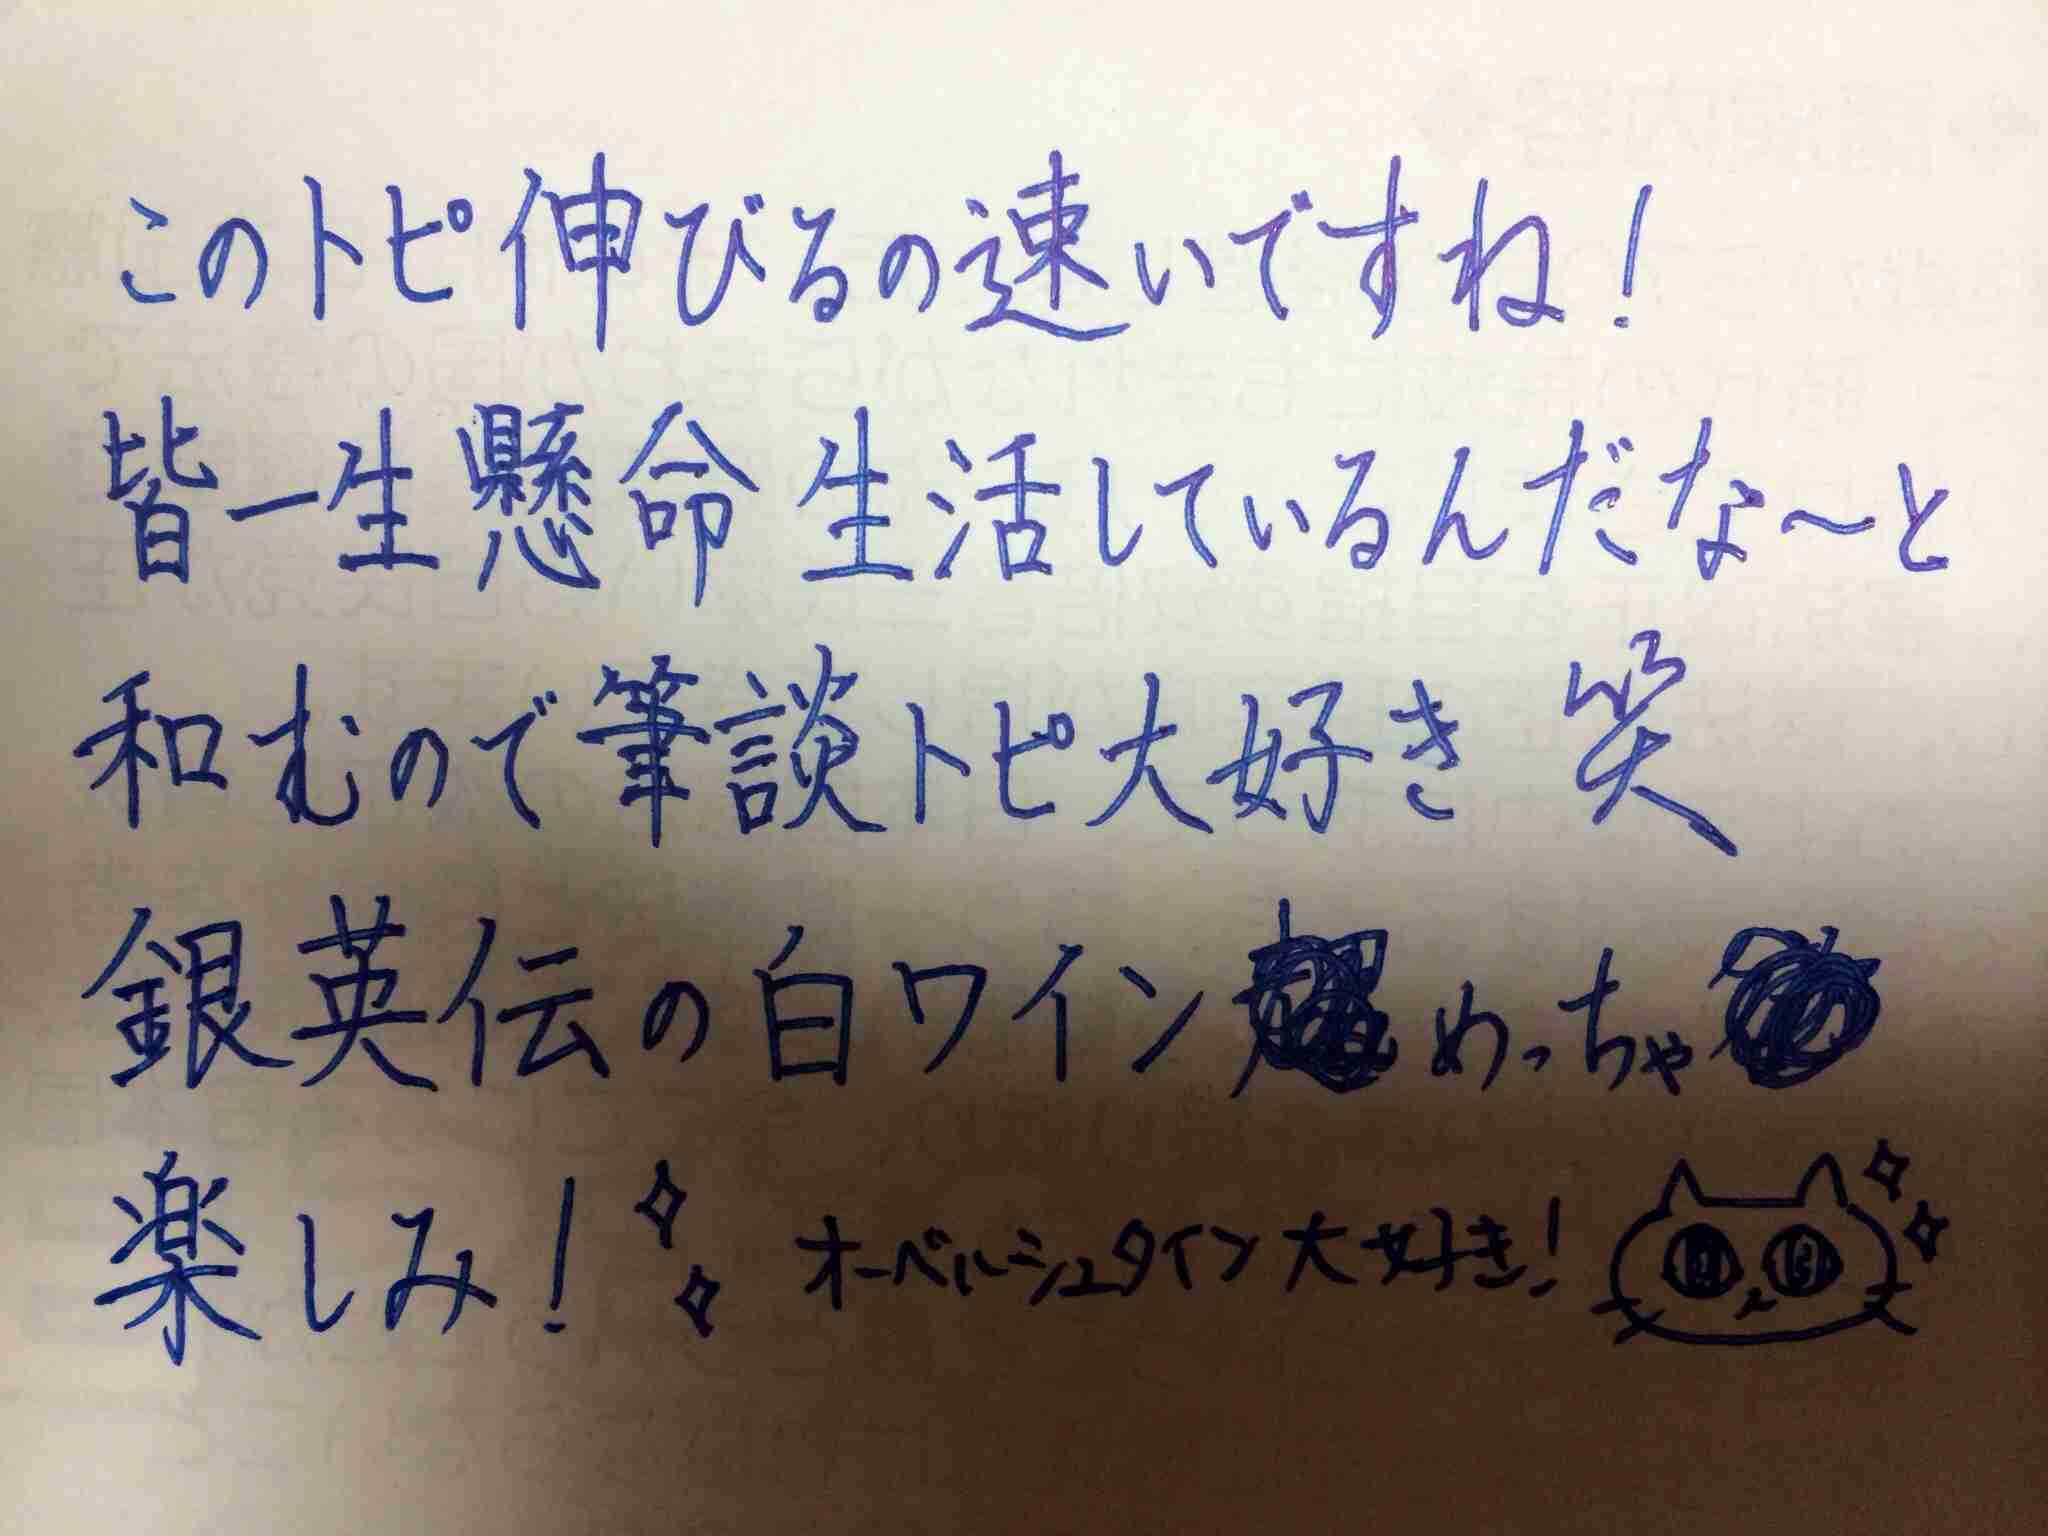 このトピ伸びるの速いですね!
皆一生懸命生活しているんだな〜と
和むので筆談トピ大好き 笑
銀英伝の白ワイン めっちゃ
楽しみ! オーベルシュタイン大好き!